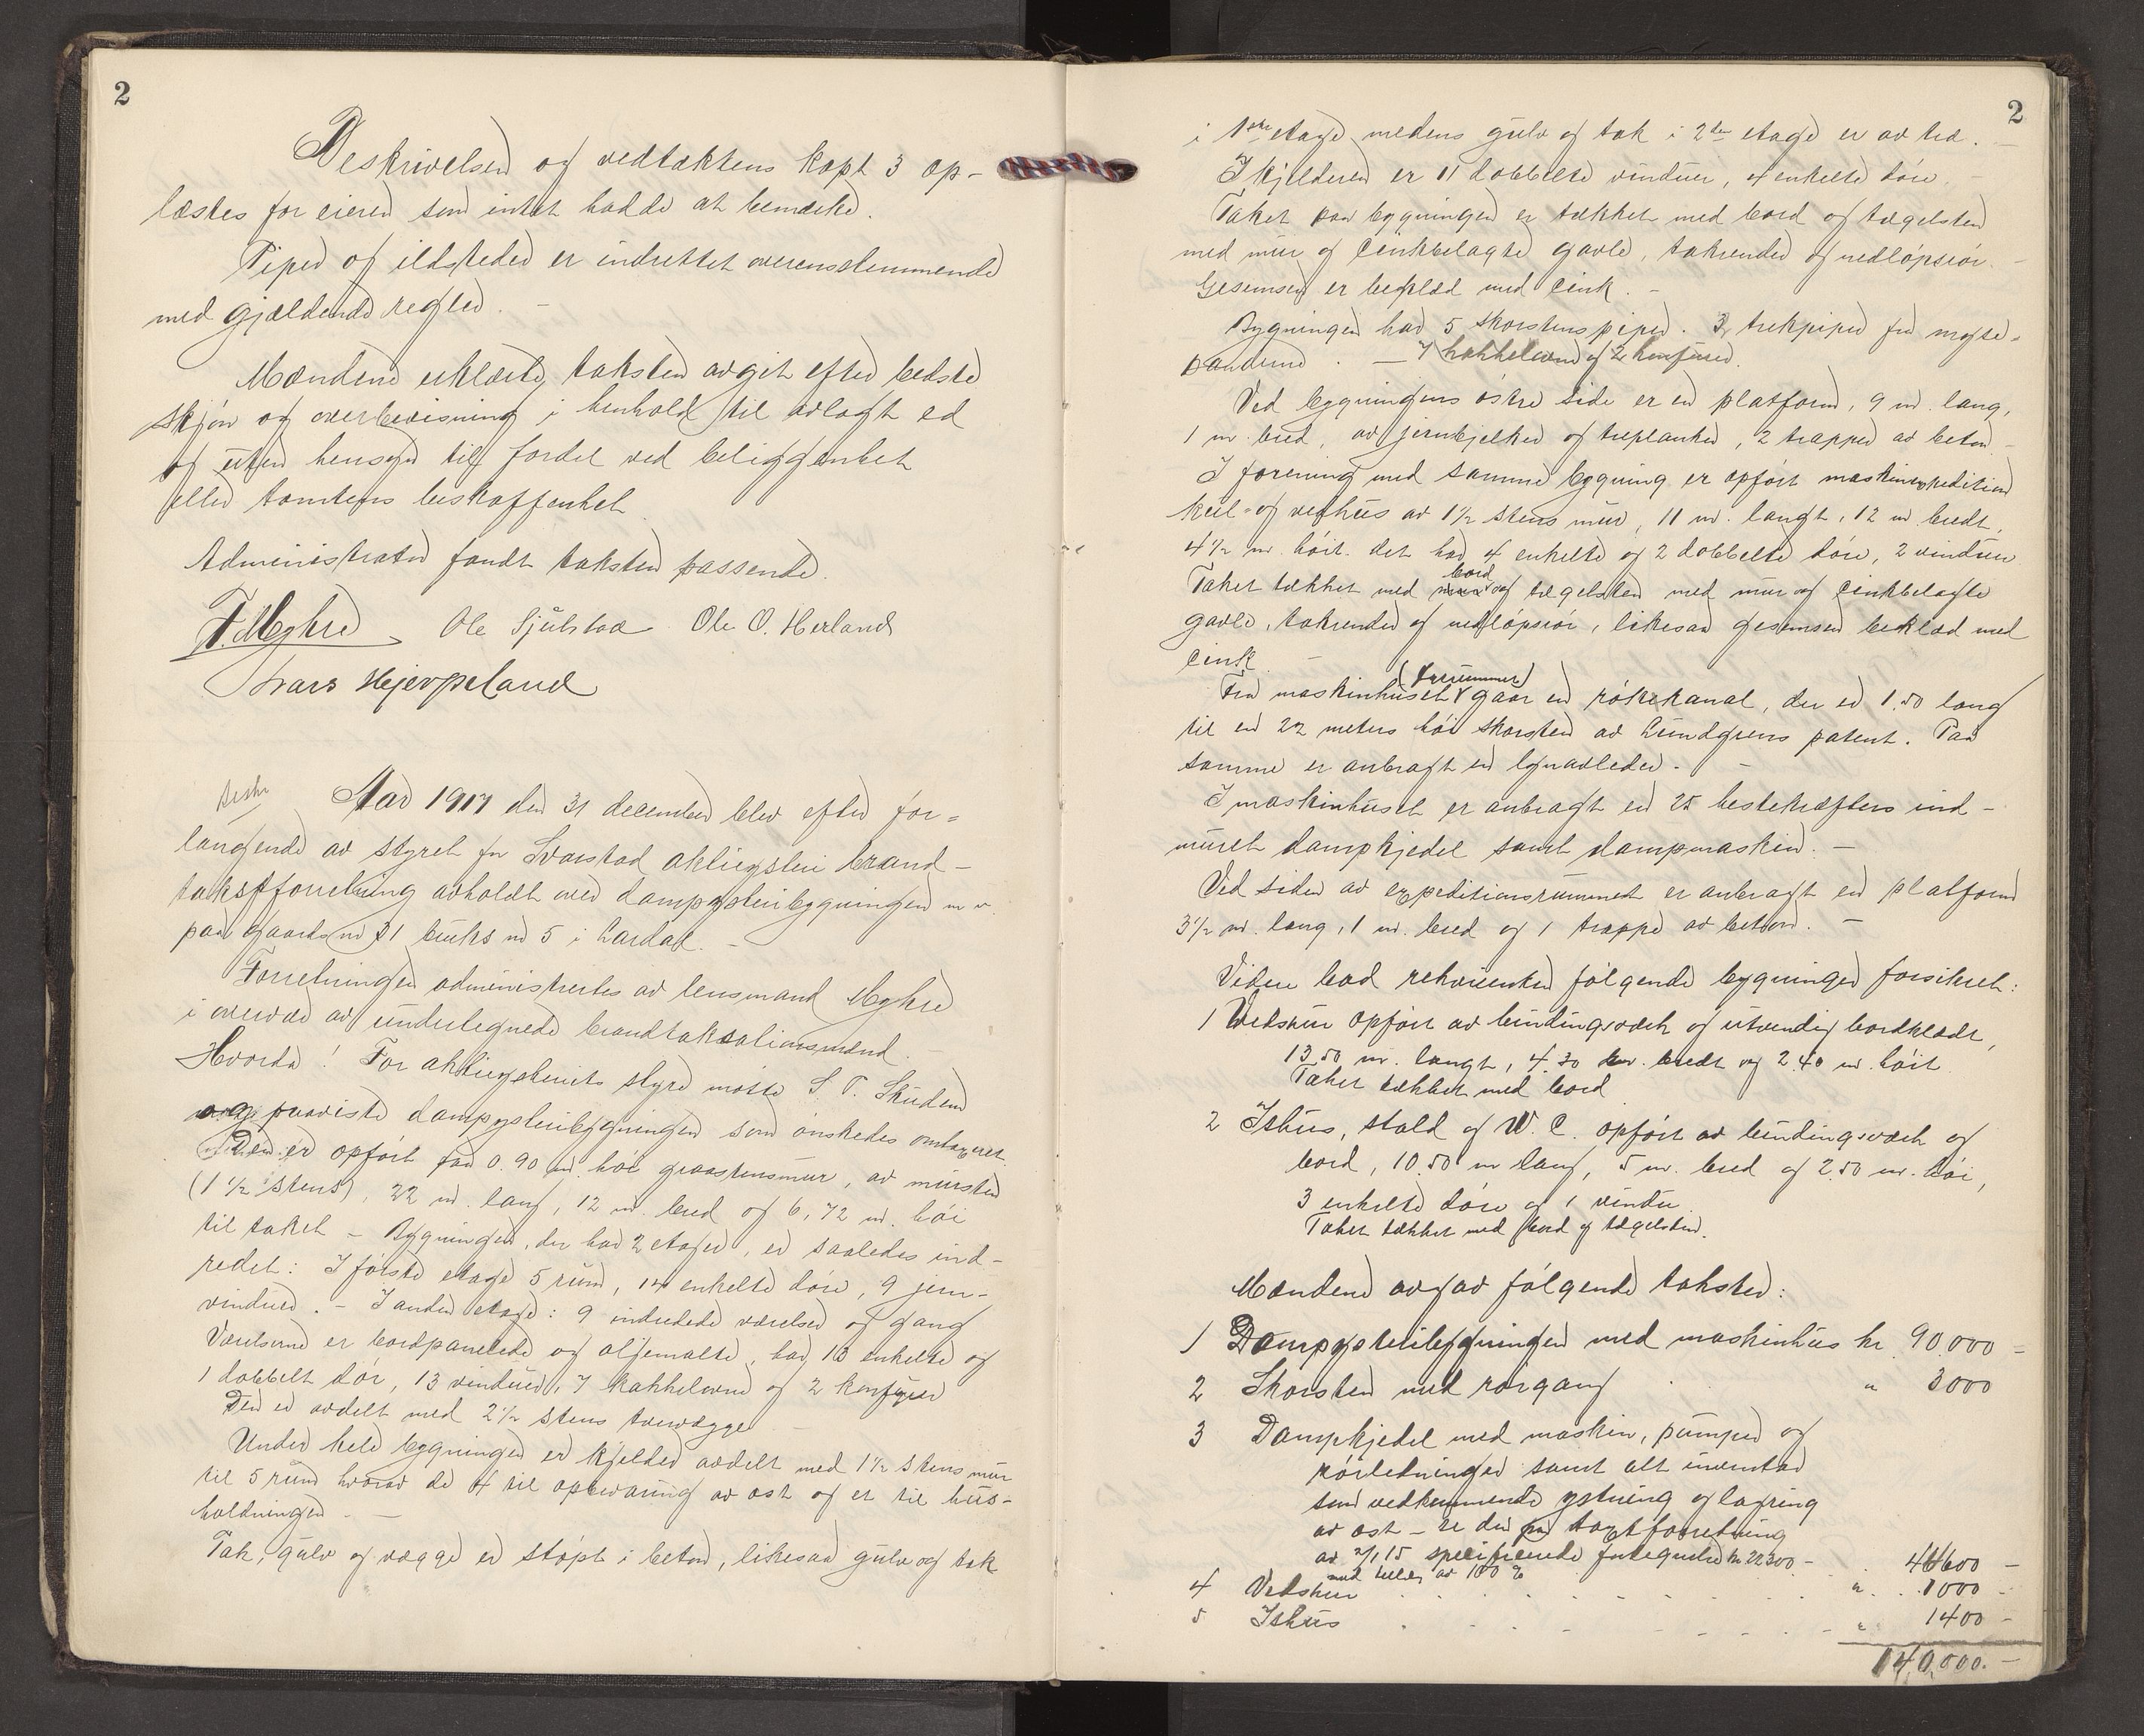 2
Beskrivelsen og vedtæktens kapt 3 op-
læstes for eieren som intet hadde at bemærke.
Piper og ildsteder er indrettet overensstemmende
med gjældende regler. -
Mændene erklærte taksten avgit efter bedste
skjøn og overbevisning i henhold til avlagt ed
og uten hensyn til fordel ved beliggenhet
eller tomtens beskaffenhet
Administrator fandt taksten passende.
F. Myhre Ole Sjulstad Ole O. Herland
Lars Hjerpeland
Aar 1917 den 31 december blev efter for-
langende av styret for Svarstad aktieysteri brand-
takstforretning avholdt over dampysteribygningen m v.
paa gaards no 31 bruks no 5 i Lardal. -
Forretningen administrertes av lensmand Myhre
i overvær av undertegnede brandtaksationsmænd. -
Hvorda! For aktieysteriets styre møtte S. P. Skuden
og paaviste dampysteribygningen som ønskedes omtaxeret.
Den er opført paa 0.90 m. høi graastensmur, av mursten
(1 1/2 stens), 22 m. lang, 12 m. bred og 6,72 m. høi
til taket - Bygningen, der har 2 etager, er saaledes ind-
redet: I første etage 5 rum, 14 enkelte døre, 9 jern-
vinduer. - I anden etage: 9 indredede værelser og gang
Værelserne er bordpanelede og oljemalte, har 13 enkelte og
1 dobbelt dør, 13 vinduer, 7 kakkelovne og 2 komfyrer
Den er avdelt med 2 1/2 stens tvervægge
Under hele bygningen er kjelder avdelt med 1 1/2 stens mur
til 5 rum hvorav de 4 til opbevaring av ost og et til hus-
holdningen. -
Tak, gulv og vægge er støpt i beton, likesaa gulv og tak
2
i 1ste etage medens gulv og tak i 2den etage er av træ. -
I kjelderen er 11 dobbelte vinduer, 4 enkelte døre. -
Taket paa bygningen er tækket med bord og tægelsten
med mur og cinkbelagte gavle, takrender og nedløpsrør. -
Gesemsen er beklæd med cink. -
Bygningen har 5 skorstenspiper. 3 trekpiper fra myse-
panderne. - 7 kakkelovne og 2 komfurer.
Ved bygningens østre side er en platform, 9 m. lang,
1 m. bred, av jernbjelker og treplanker, 2 trapper av beton -
I forening med samme bygning er opført maskinexpedition
kul- og vedhus av 1 1/2 stens mur, 11 m. langt, 12 m bredt,
4 1/2 m. høit. det har 4 enkelte og 2 dobbelte døre, 2 vinduer
Taket tækket med bord og tægelsten med mur og cinkbelagte
gavle, takrender og nedløpsrør, likesaa gesemsen beklæd med
cink. -
Fra maskinhuset (fyrrummet) gaar en røkekanal, der er 1.50 lang
til en 22 meters høi skorsten av Lundgrens patent. Paa
samme er anbragt en lynavleder. -
I maskinhuset er anbragt en 25 hestekræfters ind-
muret dampkjedel samt dampmaskin. -
Ved siden av expeditionsrummet er anbragt en platform
3 1/2 m. lang, 1 m. bred og 1 trappe av beton. -
Videre bad rekvirenten følgende bygninger forsikret:
1 Vedskur opført av bindingsværk og utvendig bordklædt,
13.50 m. langt, 4.30 m. bredt og 2.40 m. høit
Taket tækket med bord
2 Ishus, stald og W. C. opført av bindingsværk og
bord, 10.50 m lang, 5 m. bred og 2.50 m. høi,
3 enkelte døre og 1 vindu
Taket tækket med bord og tægelsten.
Mændene avgav følgende takster:
1 Dampysteribygningen med maskinhus kr. 90.000 -
2 Skorsten med rørgang " 3000
3 Dampkjedel med maskin, pumper og
rørledninger samt alt inventar
som vedkommende ystning og lagring
av ost - se den ved taxtforretning
av 2/1 15 specificerede fortegnelse kr 22300 -
med tillæg av 100 % 44600 -
4 Vedskur " 1000 -
5 Ishus " 1400 -
140,000. -